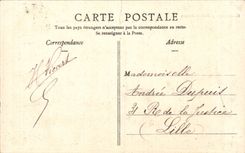 CARTE POSTALE
Tous les pays étrangers n'acceptent pas la correspondance au recto
Se renseigner à la Poste.
Correspondance
Adresse
Mademoiselle
Andrée Dupuis
R de la Justice
Lille